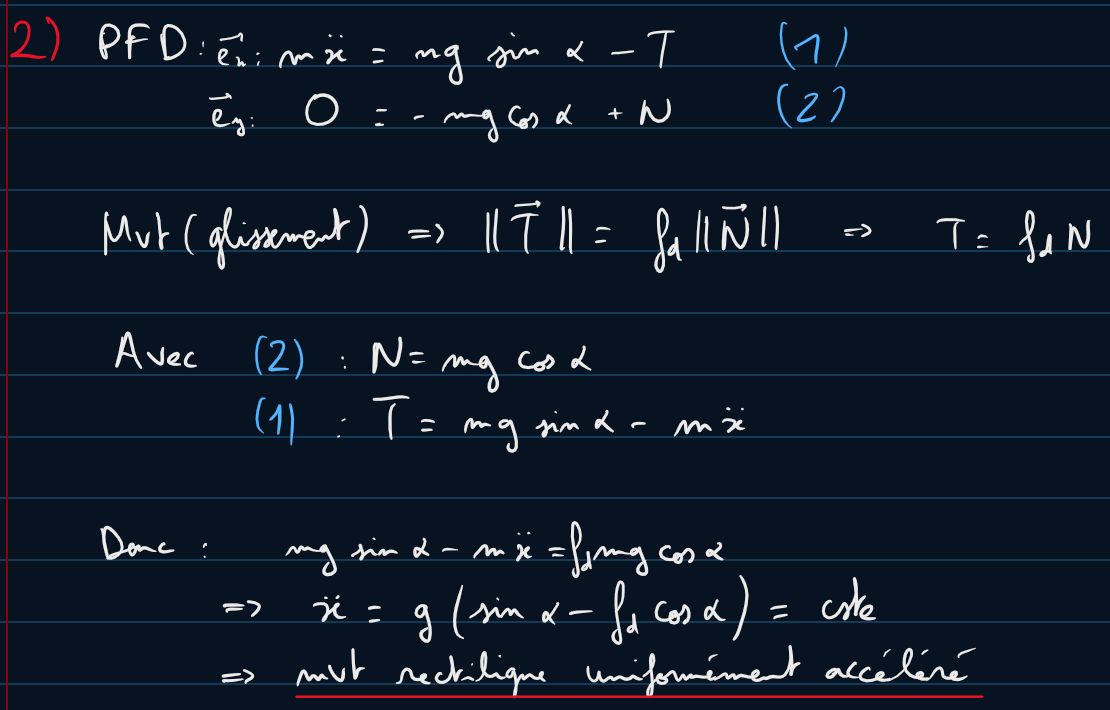 2) PFD : e⃗ₓ : mẍ = mg sin α - T (1)
e⃗ᵧ : 0 = - mg cos α + N (2)
Mvt (glissement) => ||T⃗|| = f_d ||N⃗|| => T = f_d N
Avec (2) : N = mg cos α
(1) : T = mg sin α - mẍ
Donc : mg sin α - mẍ = f_d mg cos α
=> ẍ = g (sin α - f_d cos α) = cste
=> mvt rectiligne uniformément accéléré